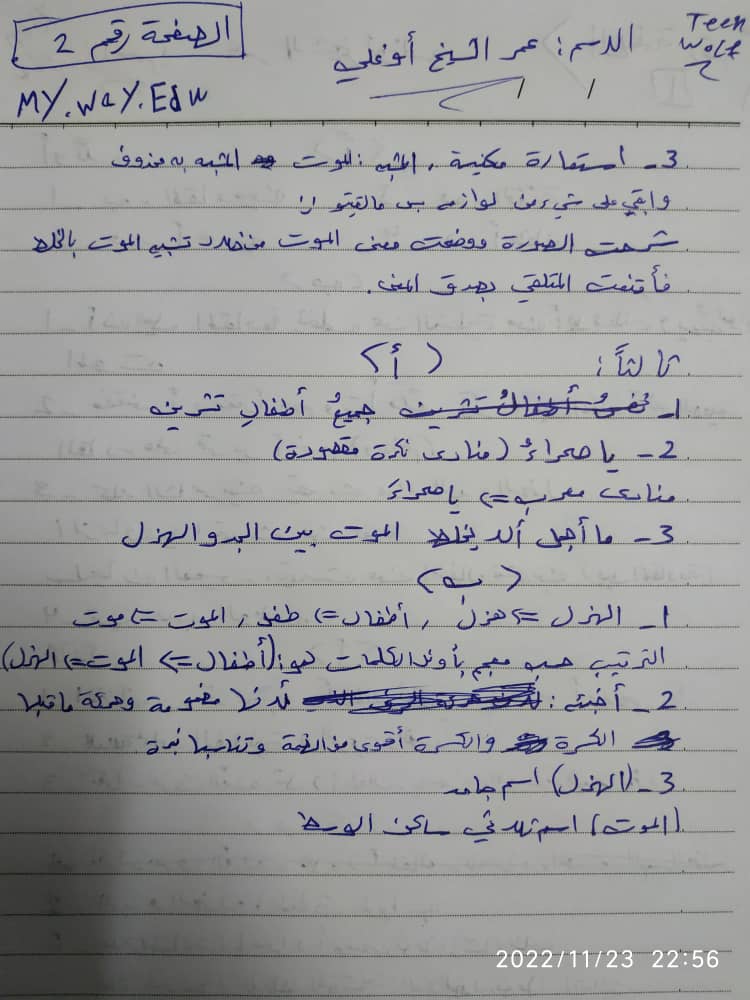 الصفحة رقم 2
الاسم: عمر الشيخ أوغلي
Teen Wolf
MY.way.Edu
3- استعارة مكنية , المشبه: الموت المشبه به محذوف
وابقي على شيء من لوازمه بس مالقيتو
شرحت الصورة ووضحت معنى الموت من خلال تشبيه الموت
فأقنعت المتلقي بصدق المعنى.
ثالثاً: (أ)
1- جميعُ أطفالِ تشرين
2- يا صحراءُ (منادى نكرة مقصودة)
منادى معرب <= يا صحراءَ
3- ما أجمل ألا يخلط الموت بين الجد والهزل
(ب)
1- الهزل <= هزل , أطفال <= طفل , الموت <= موت
الترتيب حسب معجم بأوئل الكلمات هو: (أطفال <= الموت <= الهزل)
2- أخبئه : لأنها مضمومة وحركة ما قبلها
الكسرة والكسرة أقوى من الضمة وتناسبها نبرة
3- (الهزل) اسم جامد
(الموت) اسم ثلاثي ساكن الوسط
2022/11/23 22:56